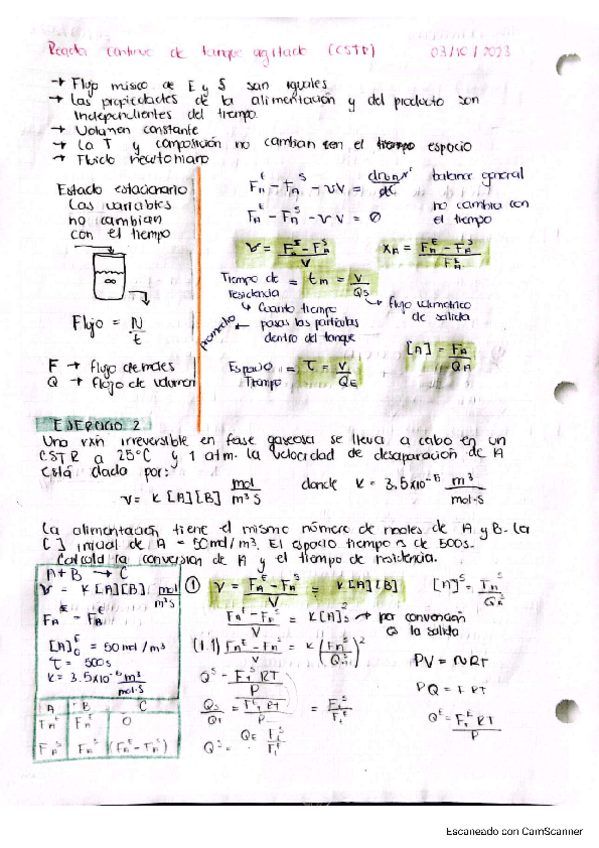 continuo de tanque agitado (CSTR) 03/10/2023
→ Flujo másico de E y S son iguales
→ Las propiedades de la alimentación y del producto son
independientes del tiempo
→ Volumen constante
→ La T y composición no cambian con el tiempo espacio
→ Fluido newtoniano
Estado estacionario
Las variables
no cambian
con el tiempo
Flujo = N/t
F → flujo de moles
Q → flujo de volumen
balance general
F_A^E - F_A^S - rV = 0 no cambia con
el tiempo
r = (F_A^E - F_A^S)/V X_A = (F_A^E - F_A^S)/F_A^E
Tiempo de residencia = tm = V/Q_S → Flujo volumétrico
de salida
↳ Cuanto tiempo
promedio ← pasas las partículas
dentro del tanque
[A] = F_A/Q_A
Espacio Tiempo = τ = V/Q_E
EJERCICIO 2
Una rxn irreversible en fase gaseosa se lleva a cabo en un
CSTR a 25°C y 1 atm. la velocidad de desaparación de A
está dado por:
r = K[A][B] mol/m³s donde K = 3.5x10⁻⁵ m³/mol·s
La alimentación tiene el mismo número de moles de A y B. La
[ ] inicial de A = 50mol/m³. El espacio tiempo es de 500s.
Calcula la conversion de A y el tiempo de residencia.
A+B → C
r = K[A][B] mol/m³s
F_A^E = F_B^E
[A]_0^E = 50mol/m³
τ = 500s
K = 3.5x10⁻⁵ m³/mol·s
A B C
F_A^E F_A^E 0
F_A^S F_A^S (F_A^E - F_A^S)
① r = (F_A^E - F_A^S)/V = K[A][B]
(F_A^E - F_A^S)/V = K[A]_S² → por convención
la salida
(1.1) (F_A^E - F_A^S)/V = K(F_A^S/Q^S)²
PV = NRT
PQ = FRT